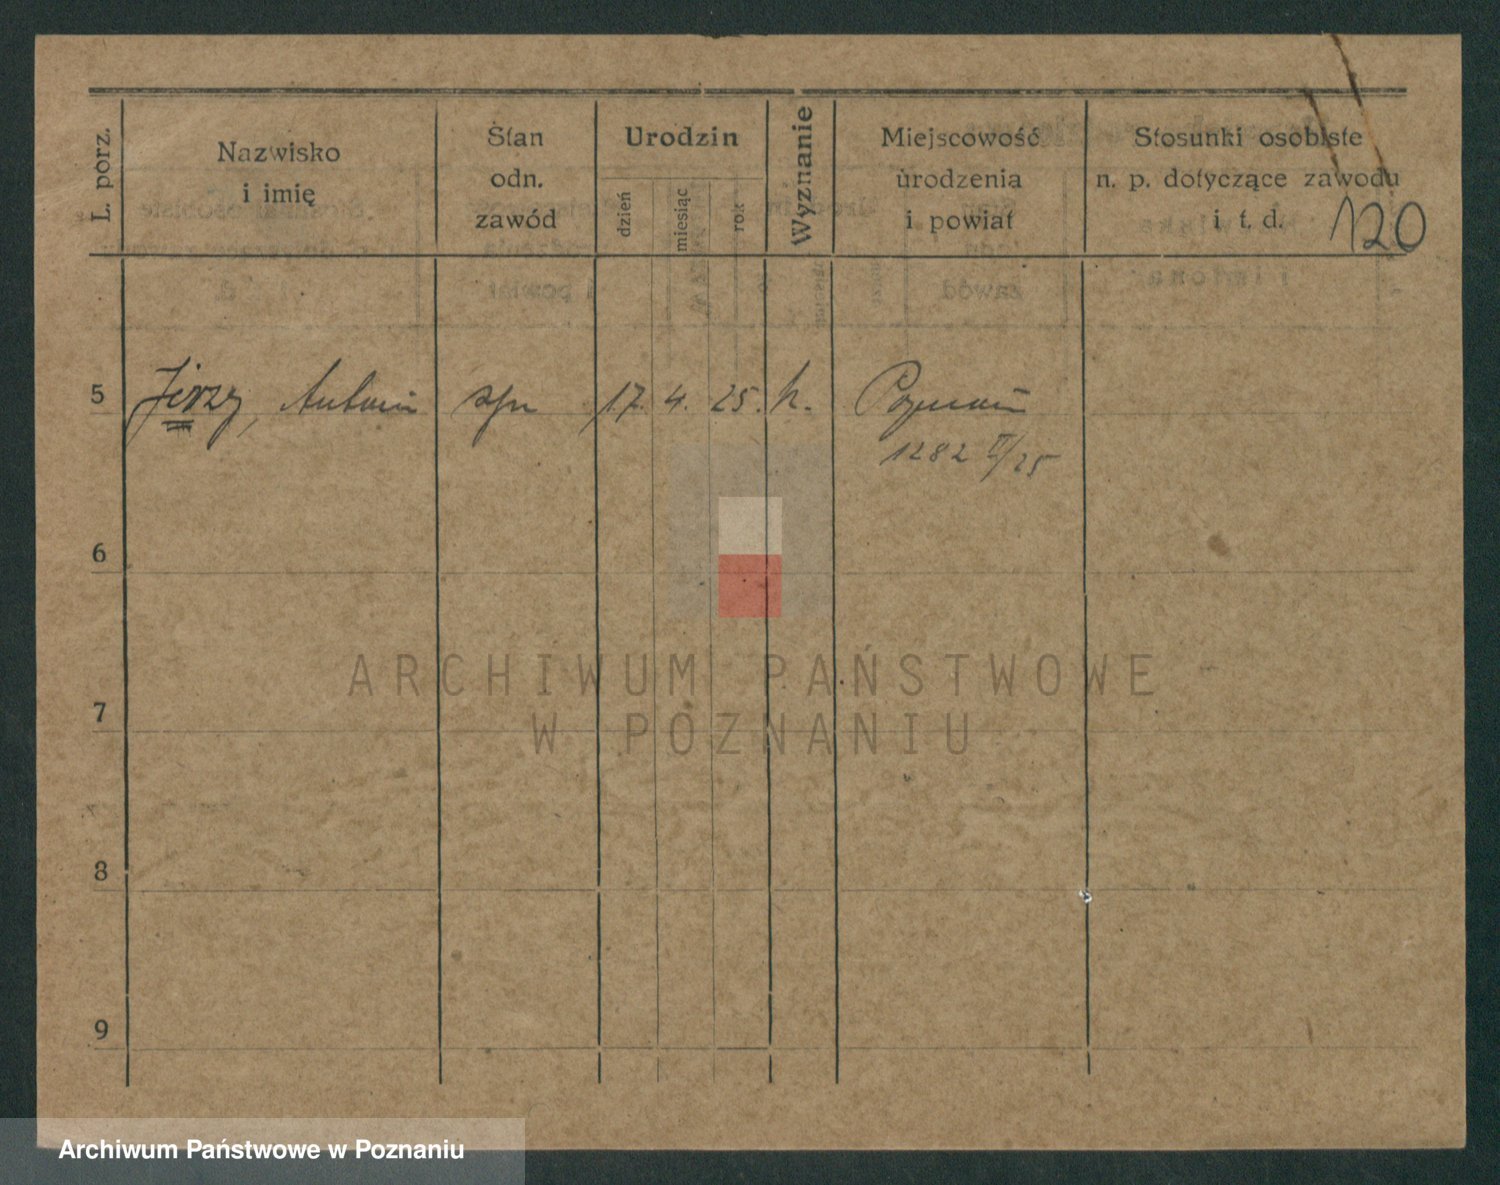 L. porz.
Nazwisko
i imię
Stan
odn.
zawód
Urodzin
dzień
miesiąc
rok
Wyznanie
Miejscowość
urodzenia
i powiat
Stosunki osobiste
n. p. dotyczące zawodu
i t. d.
120
5 Jerzy, Antoni syn 17. 4. 25. k. Poznań
1282 II/25
6
7
8
9
ARCHIWUM PAŃSTWOWE
W POZNANIU
Archiwum Państwowe w Poznaniu